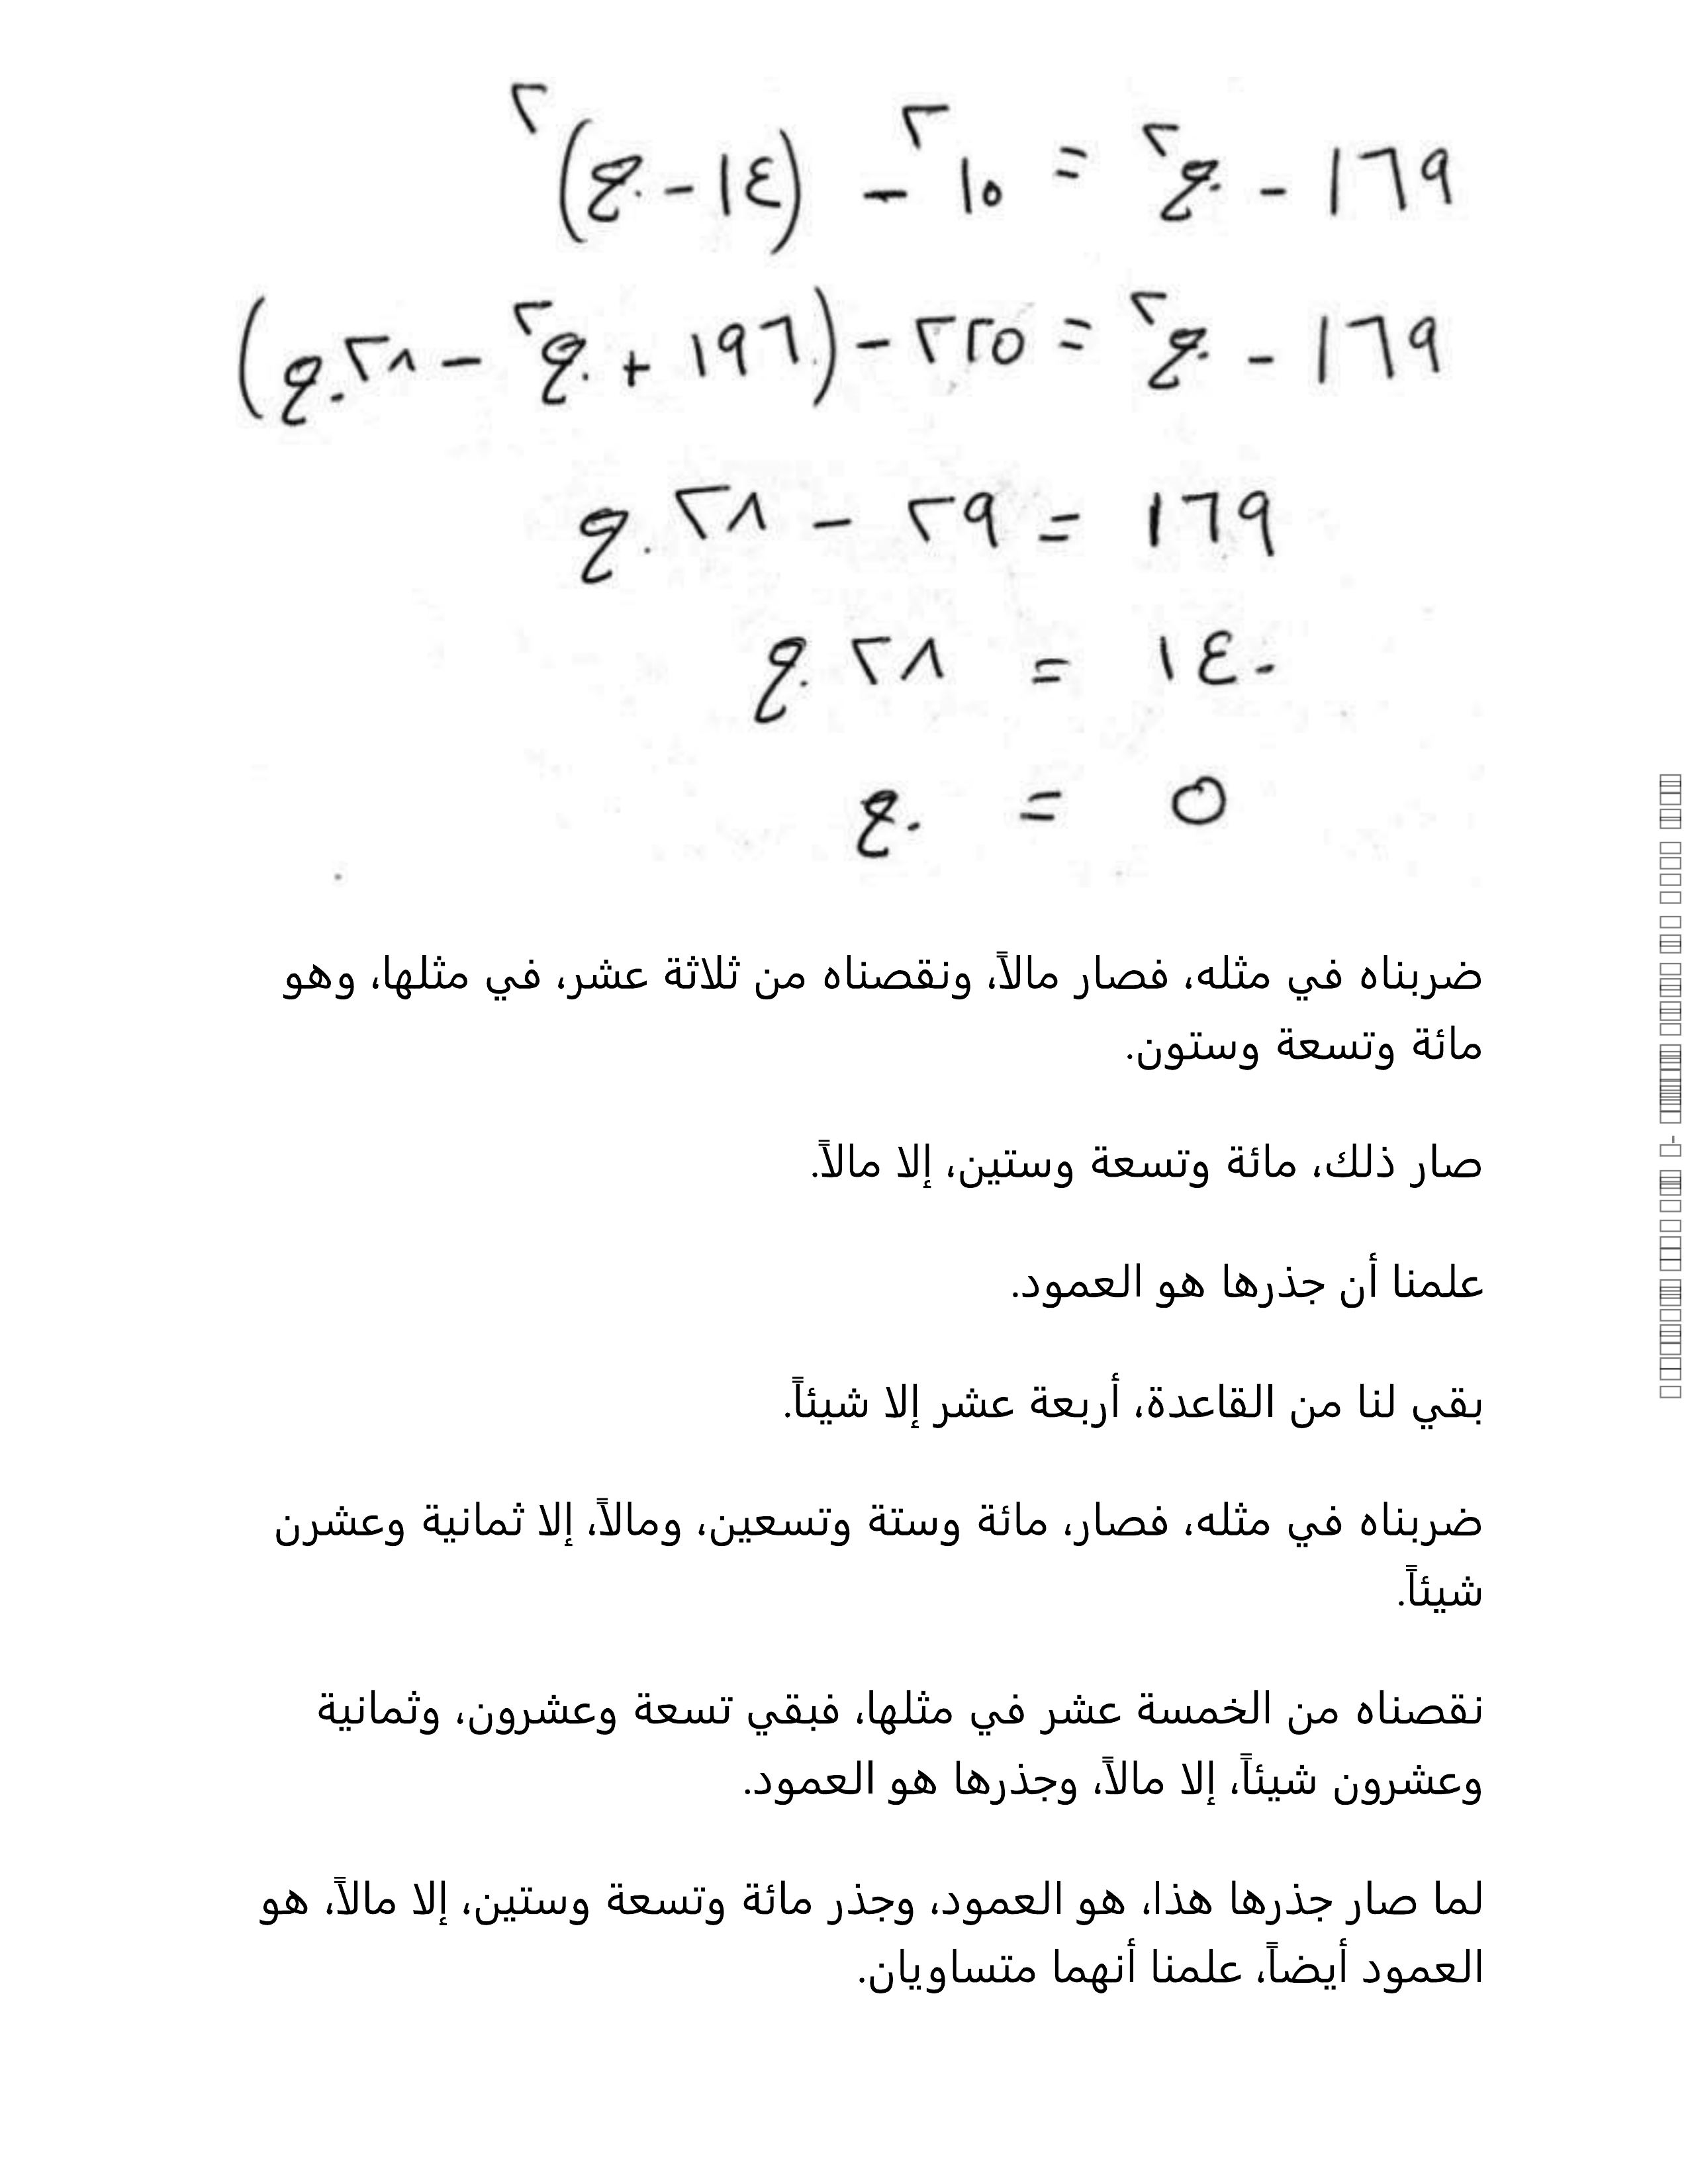 ١٦٩ - ج٢ = ١٥٢ - (١٤ - ج)٢
١٦٩ - ج٢ = ٢٢٥ - (١٩٦ + ج٢ - ٢٨ج)
١٦٩ = ٢٩ - ٢٨ج
١٤٠ = ٢٨ج
٥ = ج
ضربناه في مثله، فصار مالاً، ونقصناه من ثلاثة عشر، في مثلها، وهو
مائة وتسعة وستون.
صار ذلك، مائة وتسعة وستين، إلا مالاً.
علمنا أن جذرها هو العمود.
بقي لنا من القاعدة، أربعة عشر إلا شيئاً.
ضربناه في مثله، فصار، مائة وستة وتسعين، ومالاً، إلا ثمانية وعشرن
شيئاً.
نقصناه من الخمسة عشر في مثلها، فبقي تسعة وعشرون، وثمانية
وعشرون شيئاً، إلا مالاً، وجذرها هو العمود.
لما صار جذرها هذا، هو العمود، وجذر مائة وتسعة وستين، إلا مالاً، هو
العمود أيضاً، علمنا أنهما متساويان.